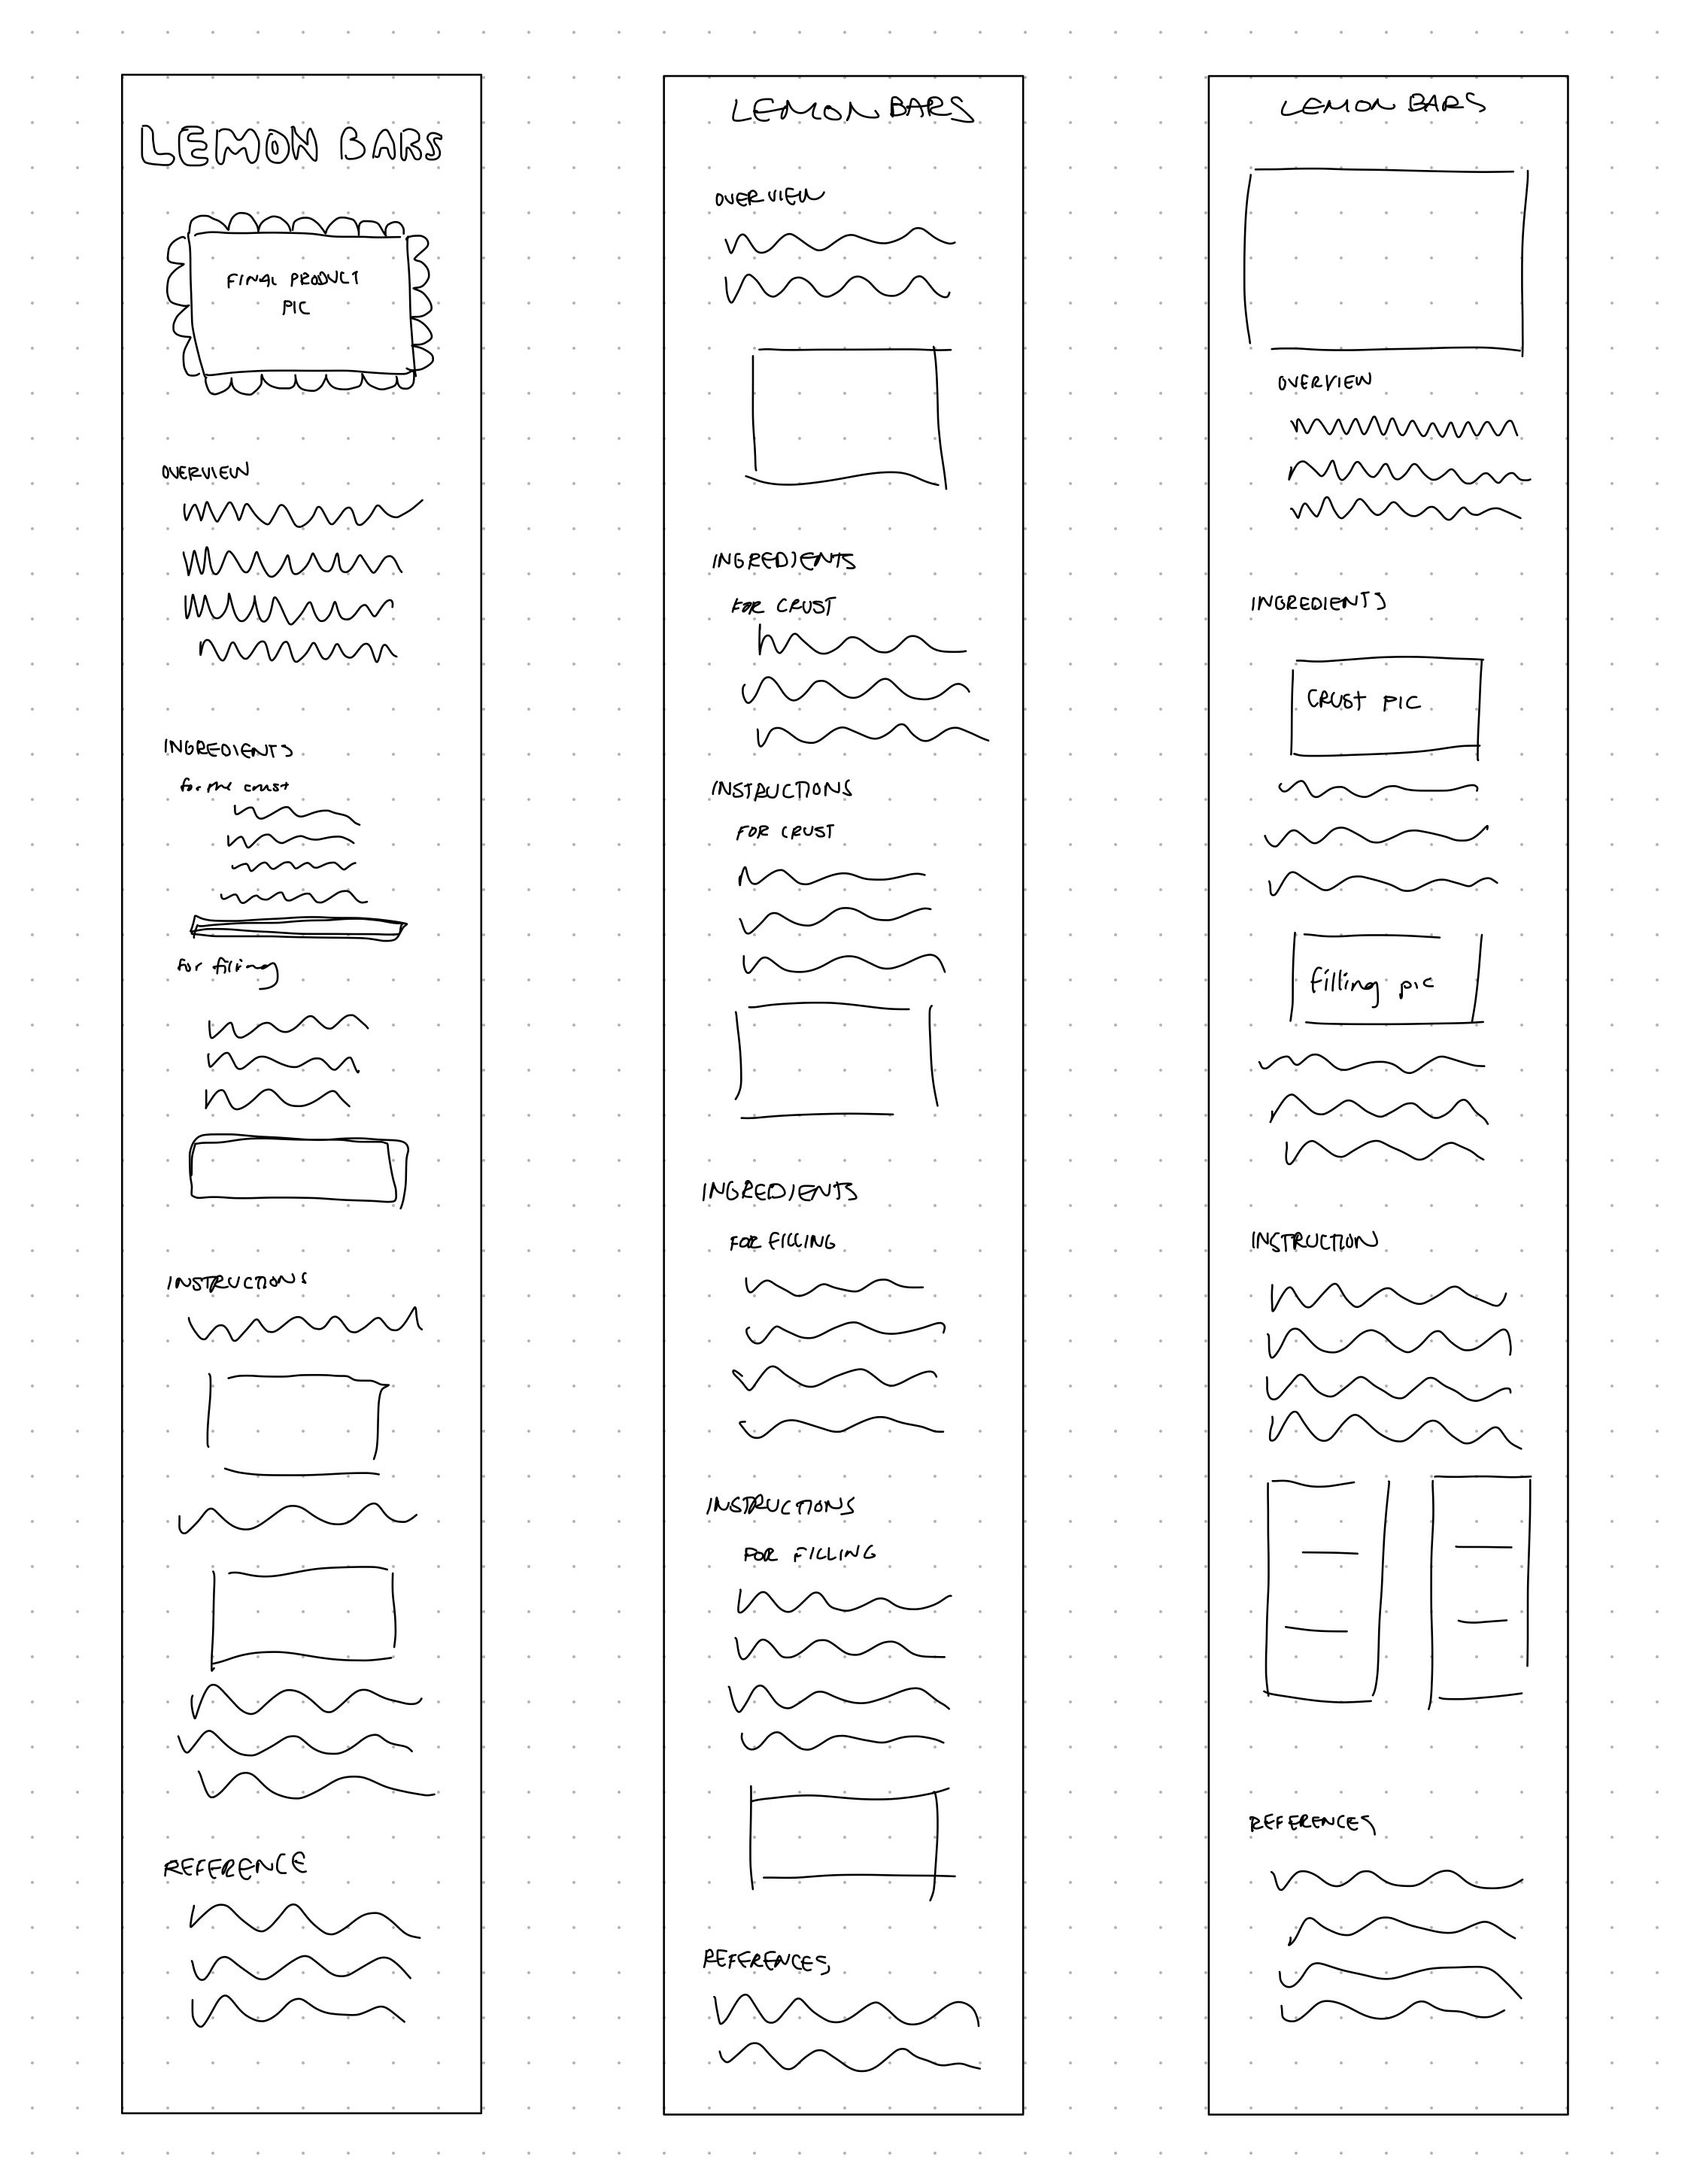 LEMON BARS
FINAL PRODUCT
PIC
OVERVIEW
INGREDIENTS
for the crust
for filling
INSTRUCTIONS
REFERENCE
LEMON BARS
OVERVIEW
INGREDIENTS
FOR CRUST
INSTRUCTIONS
FOR CRUST
INGREDIENTS
FOR FILLING
INSTRUCTIONS
FOR FILLING
REFERENCES
LEMON BARS
OVERVIEW
INGREDIENTS
CRUST PIC
filling pic
INSTRUCTION
REFERENCES